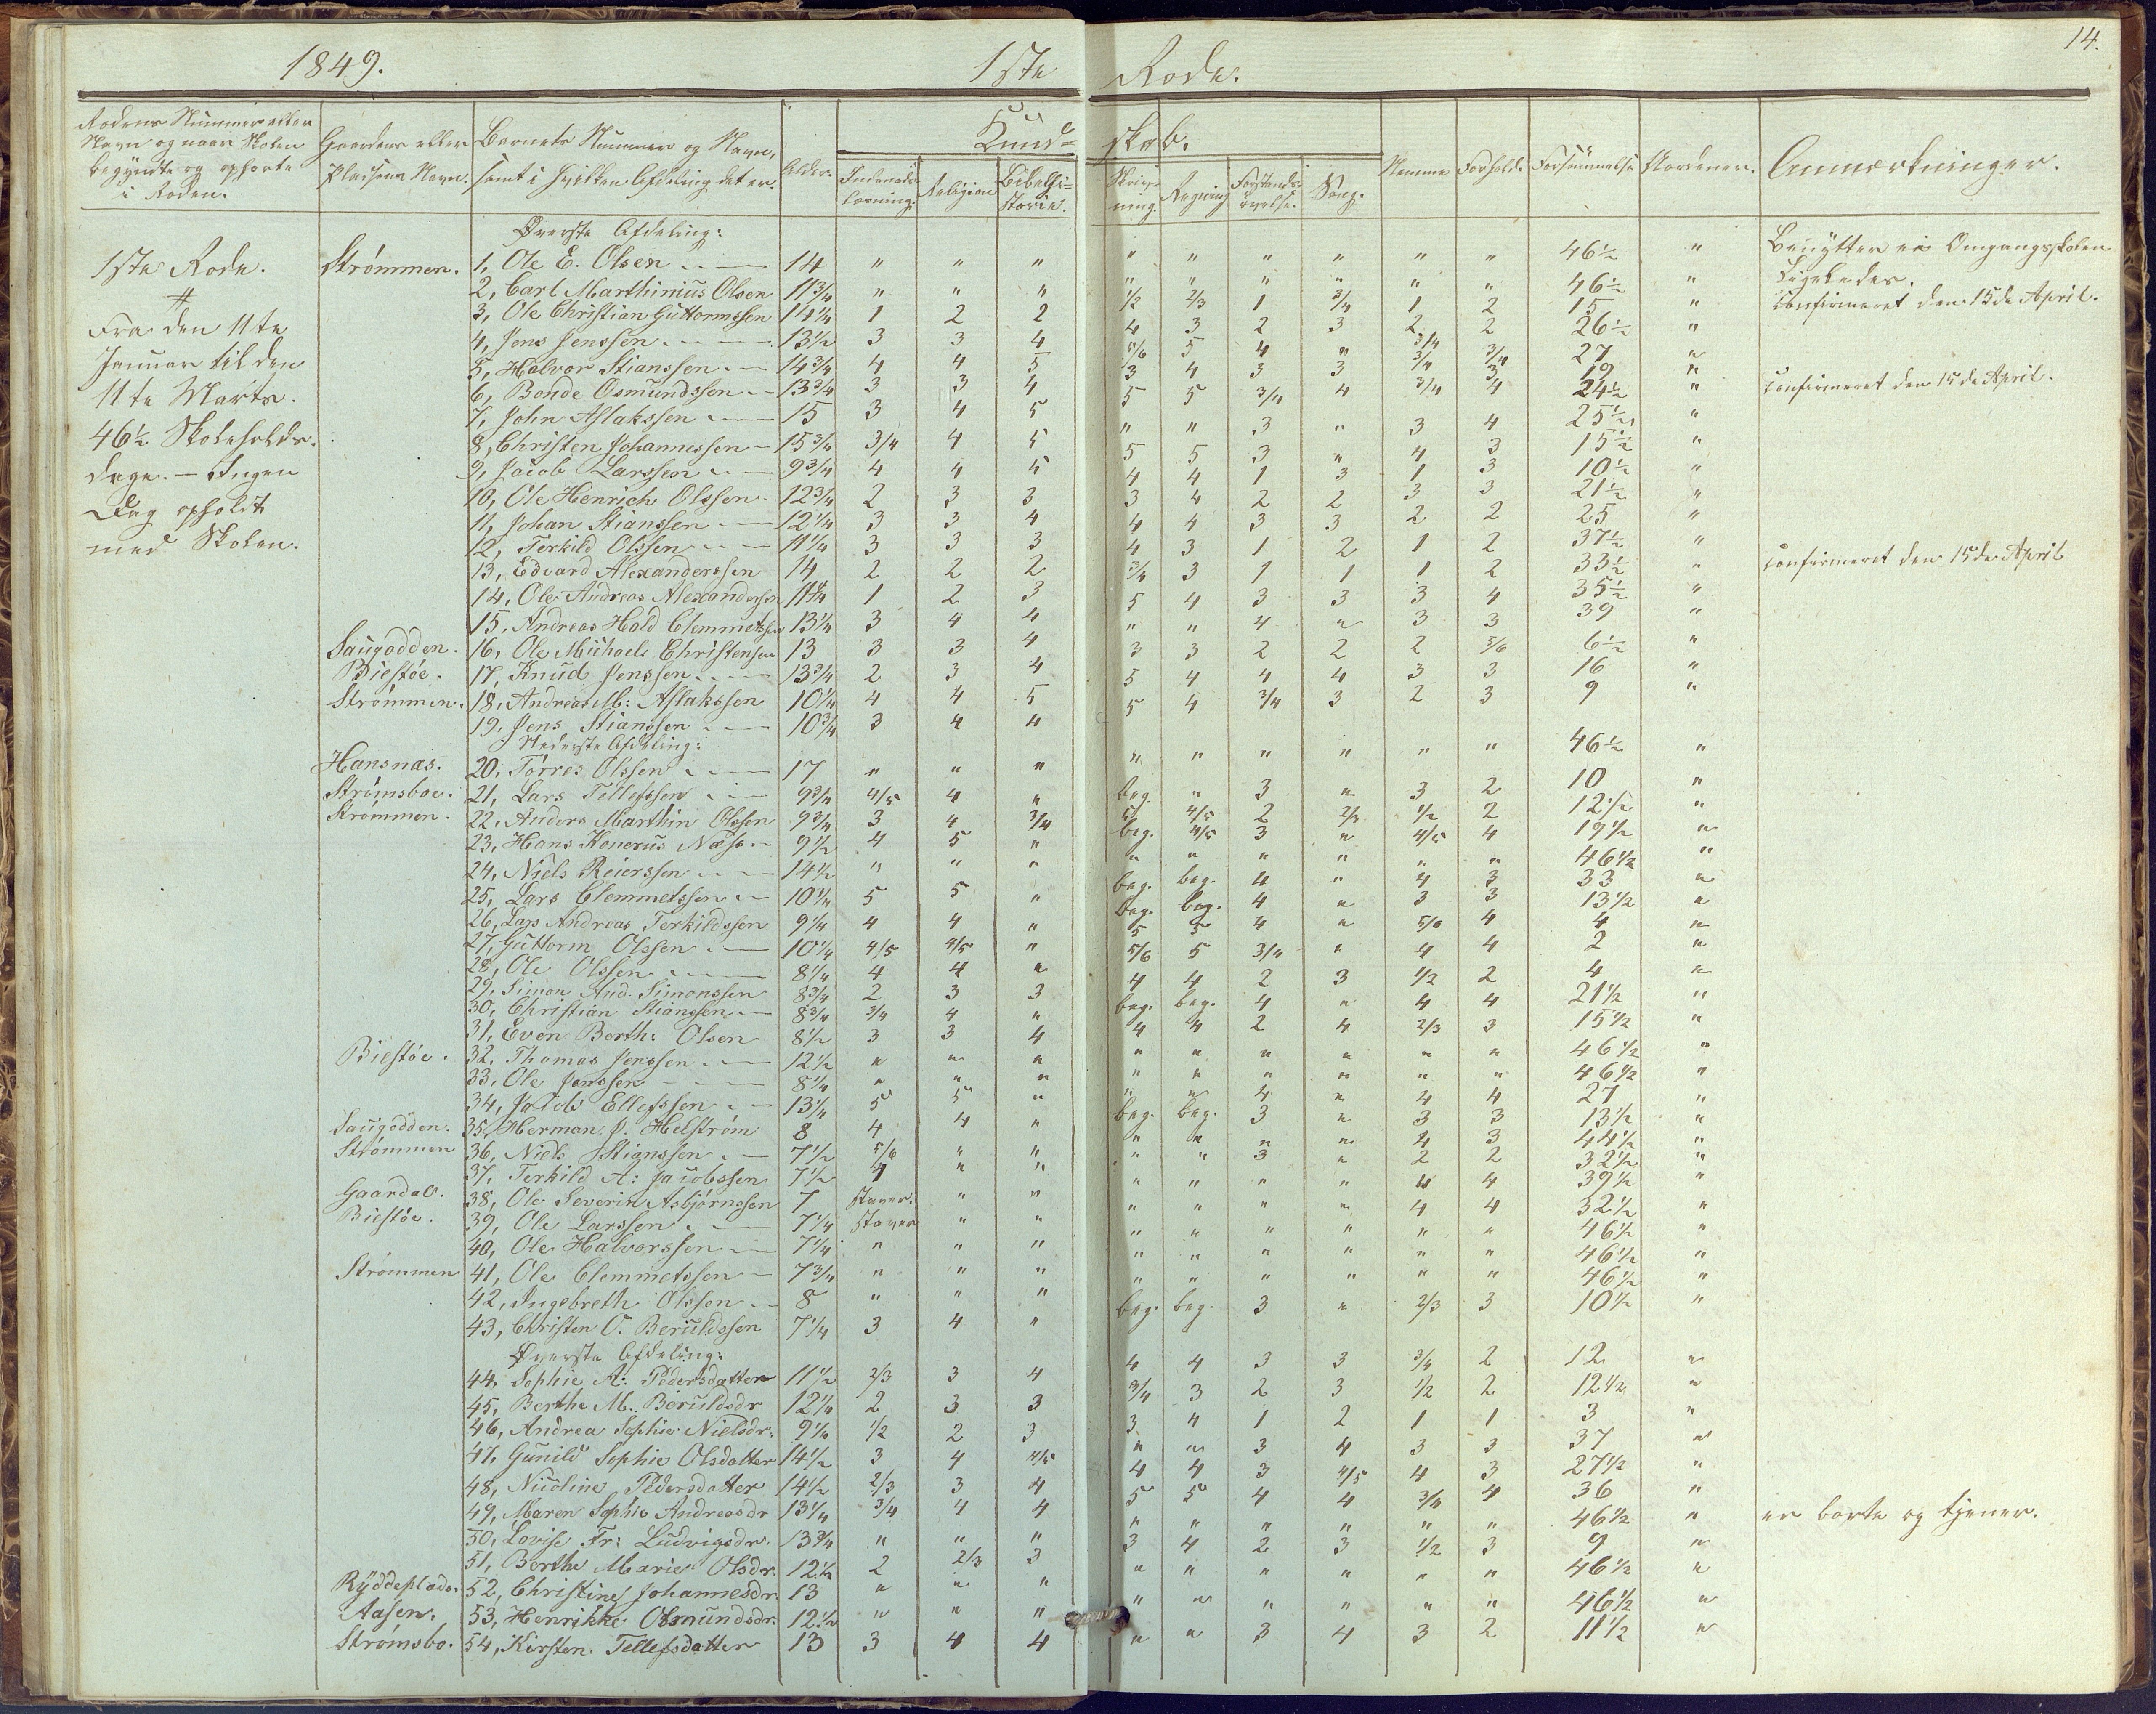 1849. 1ste Rode. 14.
Rodens Nummer eller Navn og naar Skolen begyndte og ophørte i Roden. | Gaardens eller Pladsens Navn. | Barnets Nummer og Navn, samt i hvilken Afdeling det er. | Alder. | Kundskab. | Nemme | Forhold. | Forsømmelse | Skoedenen. | Anmærkninger.
Indenadslæsning. | Religion | Bibelhistorie. | Skrivning. | Regning | Forstandsøvelse. | Sang.
1ste Rode.
#
Fra den 11te
Januar til den
11te Marts.
46½ Skoleholds-
dage. — Ingen
Dag opholdt
med Skolen.
Øverste Afdeling:
Strømmen. 1, Ole E. Olsen 14 " " " " " " " " " 46½ " Benytter ei Omgangsskolen
2, Carl Marthinius Olsen 11¾ " " " " " " " " " 46½ " Ligeledes.
3, Ole Christian Guttormssen 14¼ 1 2 2 1/2 2/3 1 3/4 1 2 15 " Confirmeret den 15de April.
4, Jens Jenssen 13½ 3 3 4 4 3 2 3 2 2 26½ "
5, Halvor Stianssen 14¾ 4 4 5 5/6 5 4 " 3/4 3/4 27 "
6, Bonde Osmundssen 13¾ 3 3 4 3 4 3 3 3/4 3 19 "
7, John Aslakssen 15 3 4 5 5 5 3/4 4 3/4 4 24½ " Confirmeret den 15de April.
8, Christen Johannessen 15¾ 3/4 4 5 " " 3 " 3 4 25½ "
9, Jacob Larssen 9¾ 4 4 5 5 5 3 " 4 3 15½ "
10, Ole Henrich Olssen 12¾ 2 3 3 4 4 1 3 1 3 10½ "
11, Johan Stianssen 12¼ 3 3 4 3 4 2 2 3 3 21½ "
12, Terkild Olssen 11¼ 3 3 3 4 4 3 3 2 2 25 "
13, Edvard Alexanderssen 14 2 2 2 4 3 1 2 1 2 37½ "
14, Ole Andreas Alexandersen 11¼ 1 2 3 3/4 3 1 1 1 2 33½ " Confirmeret den 15de April
15, Andreas Hald Clemmetssen 13¼ 3 4 4 5 4 3 3 3 4 35½ "
Saugodden. 16, Ole Michael Christensen 13 3 3 4 " " 4 " 3 3 39 "
Biestøe. 17, Knud Jenssen 13¾ 2 3 4 3 3 2 2 2 5/6 6½ "
Strømmen. 18, Andreas M: Aslakssen 10¼ 4 4 5 5 4 4 4 3 3 16 "
19, Jens Stianssen 10¾ 3 4 4 5 4 3/4 3 2 3 9 "
Nederste Afdeling:
Hansnæs. 20, Torres Olssen 17 " " " " " " " " " 46½ "
Strømsboe. 21, Lars Tellefssen 9¾ 4/5 4 " beg. " 3 " 3 2 10 "
Strømmen. 22, Anders Marthin Olssen 9¾ 3 4 3/4 5 4/5 2 2/3 1/2 2 12½ "
23, Hans Konerus Næss 9½ 4 5 " beg. 4/5 3 " 4/5 4 19½ "
24, Niels Reierssen 14½ " " " " " " " " " 46½ "
25, Lars Clemmetssen 10¼ 5 5 " beg. beg. 4 " 4 3 33 "
26, Lars Andreas Terkildssen 9¼ 4 4 " beg. beg. 4 " 3 3 13½ "
27, Guttorm Olssen 10¼ 4/5 4/5 " 5 5 4 " 5/6 4 4 "
28, Ole Olssen 8¼ 4 4 " 5/6 5 3/4 " 4 4 2 "
29, Simon And. Simonssen 8¾ 2 3 3 4 4 2 3 1/2 2 4 "
30, Christian Stianssen 8¾ 3/4 4 " beg. beg. 4 " 4 4 21½ "
31, Even Berth: Olsen 8½ 3 3 4 4 4 2 4 2/3 3 15½ "
Biestøe. 32, Thomas Jenssen 12½ " " " " " " " " " 46½ "
33, Ole Janssen 8¼ " " " " " " " " " 46½ "
34, Jacob Ellefssen 13¼ 5 5 " " " 4 " 4 4 27 "
Saugodden. 35, Herman J. Helstrøm 8 4 4 " beg. beg. 3 " 3 3 13½ "
Strømmen 36, Niels Stianssen 7½ 5/6 " " " " " " 4 3 44½ "
37, Terkild A: Jacobssen 7½ 4 " " " " 3 " 2 2 32½ "
Gaardal. 38, Ole Severin Asbjørnssen 7 staver. " " " " " " 4 4 39½ "
Biestøe. 39, Ole Larssen 7¼ staver " " " " " " 4 4 32½ "
40, Ole Halvorssen 7¼ " " " " " " " " " 46½ "
Strømmen 41, Ole Clemmetssen 7¾ " " " " " " " " " 46½ "
42, Ingebreth Olssen 8 " " " " " " " " " 46½ "
43, Christen O. Beruldssen 7¼ 3 4 " beg. beg. 3 " 2/3 3 10½ "
Øverste Afdeling:
44, Sophie A: Pedersdatter 11½ 2/3 3 4 4 4 3 3 3/4 2 12 "
45, Berthe M. Beruldsdr 12¼ 2 3 3 3/4 3 2 3 1/2 2 12½ "
46, Andrea Sophie Nielsdr. 9¼ 1/2 2 3 3 4 1 2 1 1 3 "
47, Gunild Sophie Olsdatter 14½ 3 4 4/5 " " 3 4 3 3 37 "
48, Nicoline Pedersdatter 14½ 2/3 3 4 4 4 3 4/5 4 3 27½ "
49, Maren Sophie Andreasdr 13¼ 3/4 4 4 5 5 4 4 3/4 4 36 "
50, Lovise Fr: Ludvigsdr. 13¾ " " " " " " " " " 46½ " er borte og tjener.
51, Berthe Marie Olsdr. 12½ 2 2/3 3 3 4 2 3 1/2 3 9 "
Ryddeplads. 52, Christine Johannesdr. 13 " " " " " " " " " 46½ "
Aasen. 53, Henrikke Osmundsdr. 12½ " " " " " " " " " 46½ "
Strømsbo. 54, Kirsten Tellefsdatter 13 3 4 4 " " 3 4 3 2 11½ "